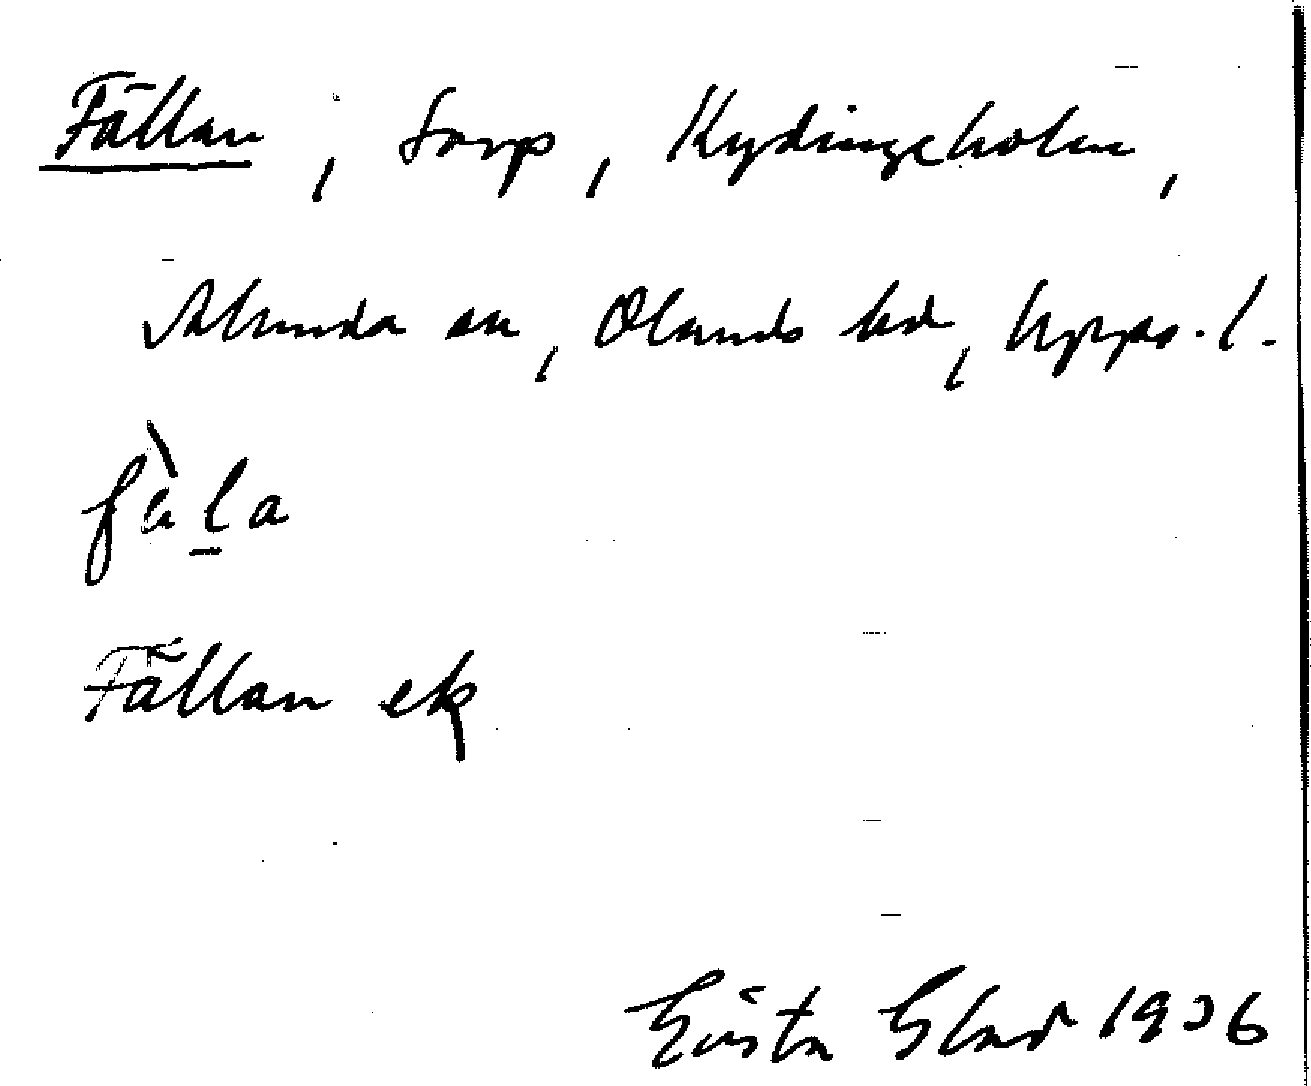 Fällan, torp, Kydingeholm,
Alunda sn, Olands hd, Upps. l.
fä̀la
Fällan ek
Gösta Glad 1936